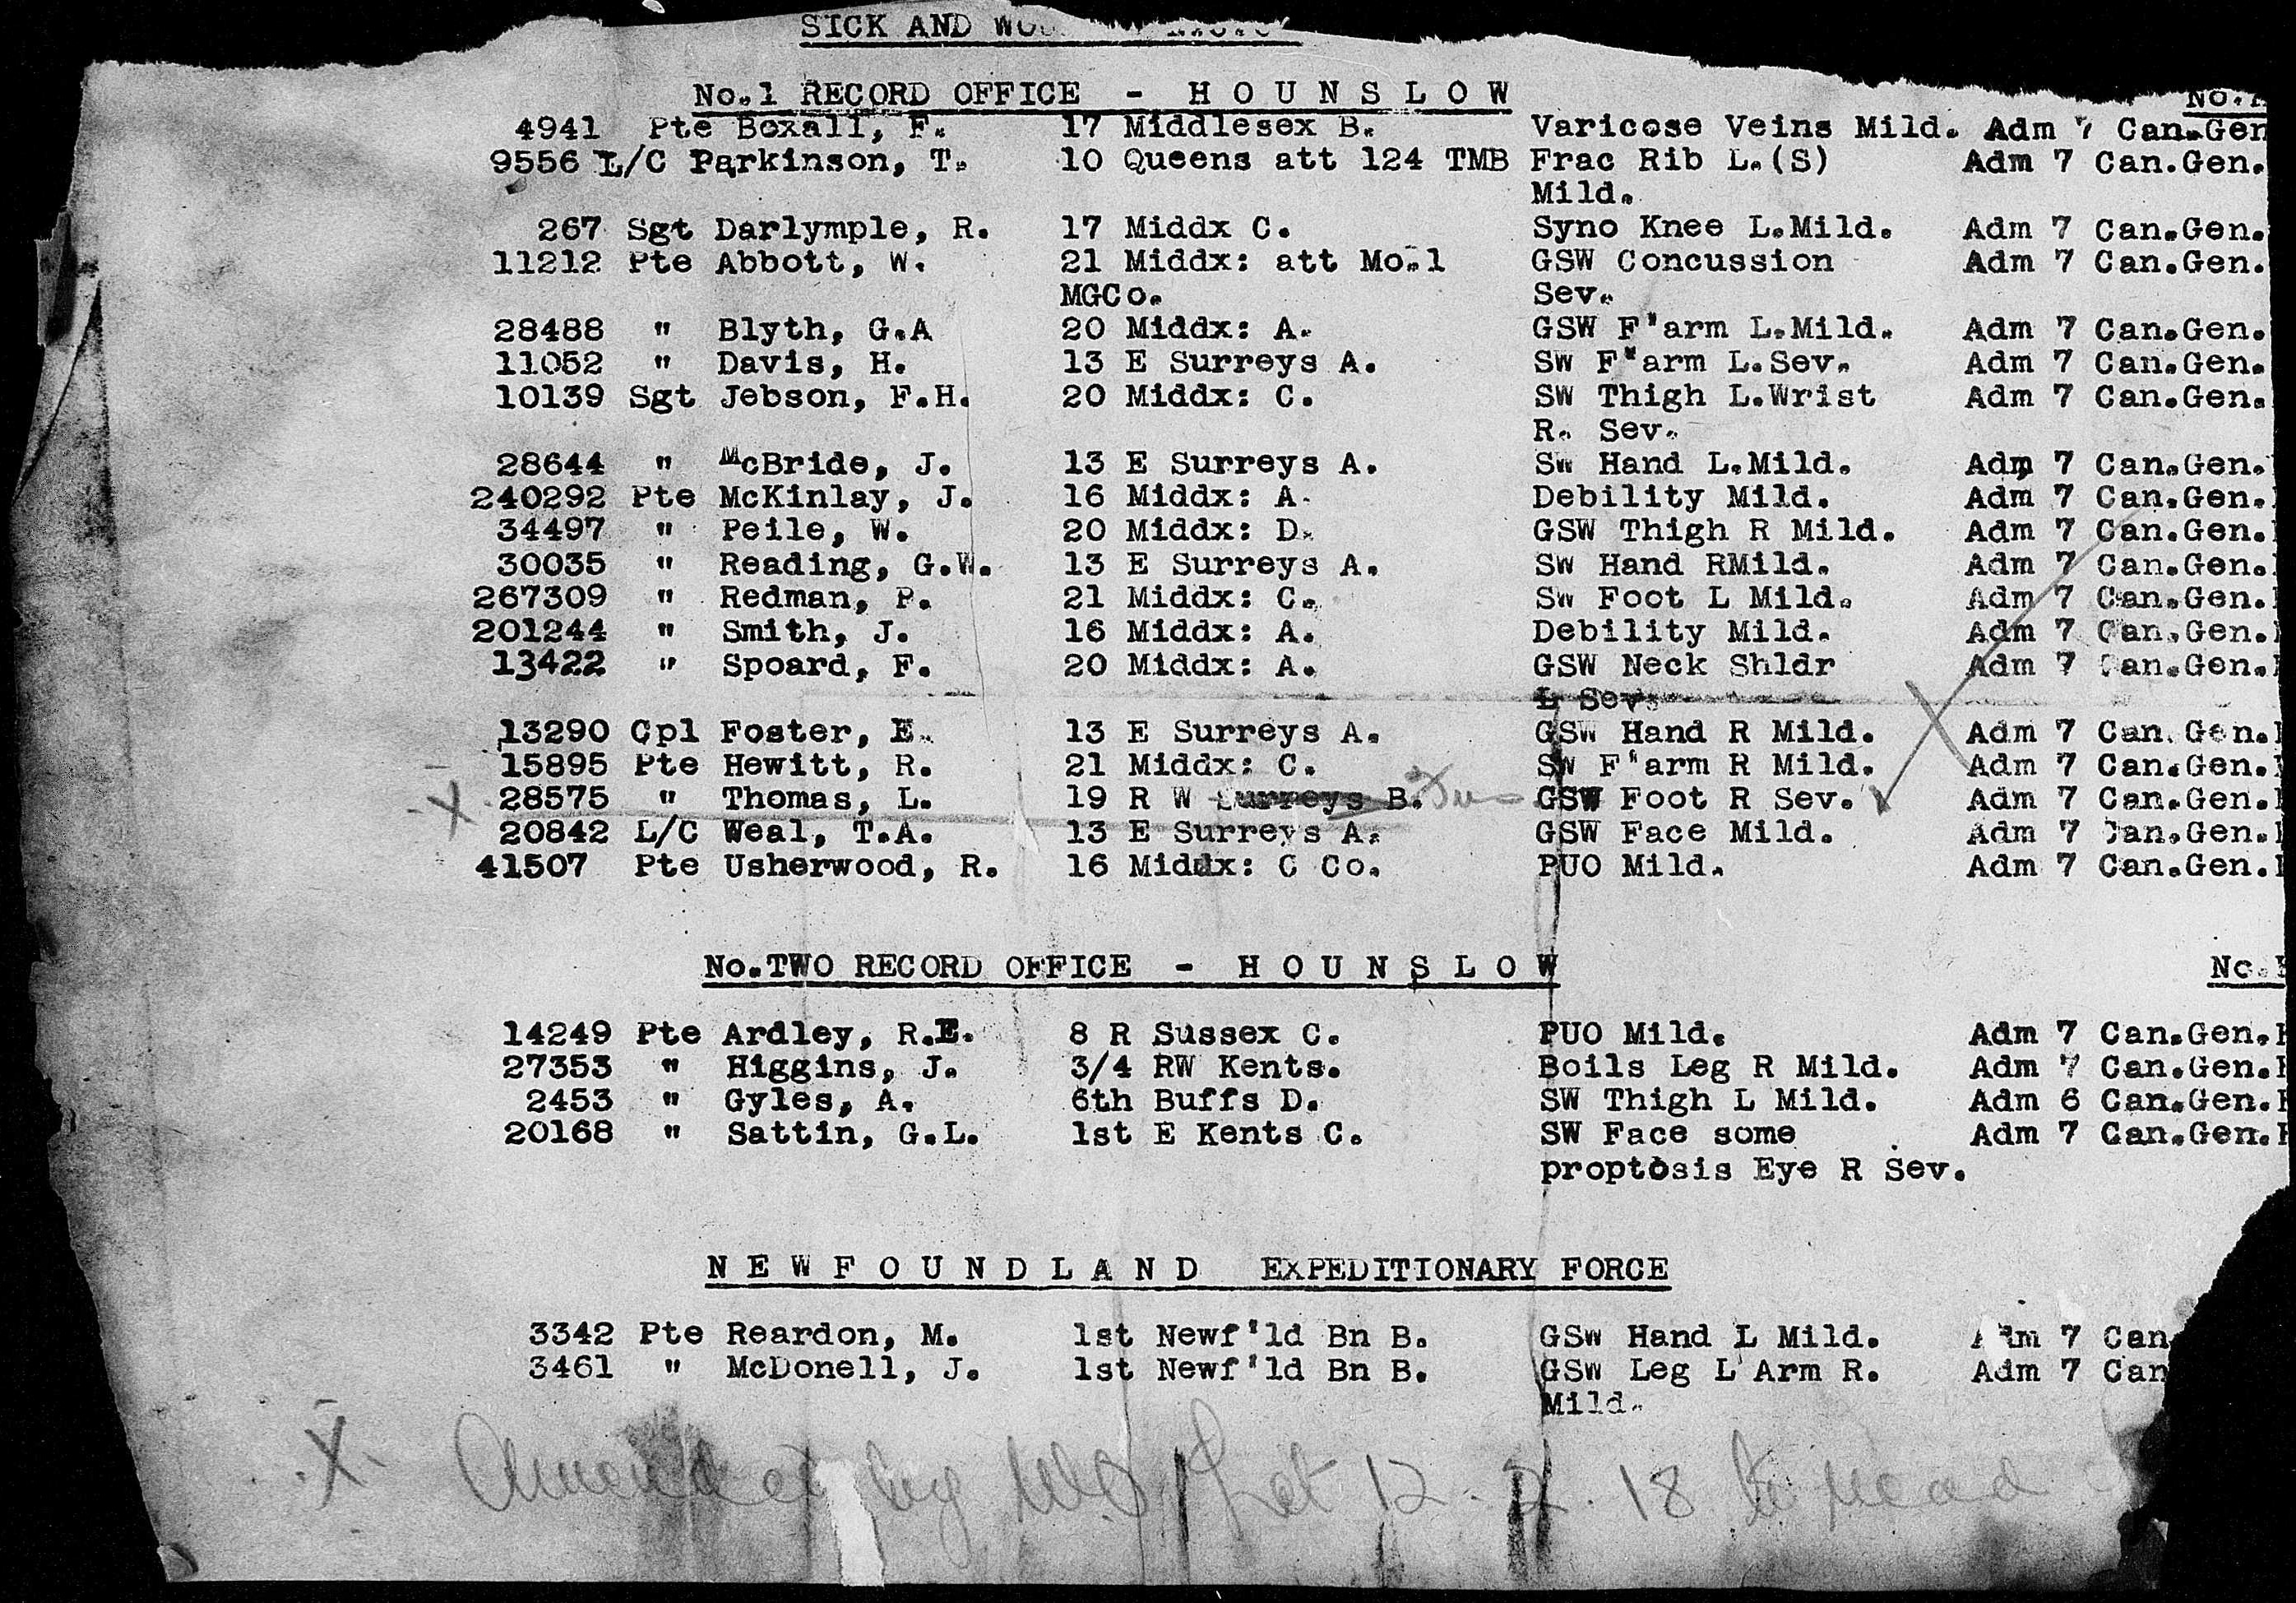 SICK AND
No.1 RECORD OFFICE - H O U N S L O W No.
4941 Pte Boxall, F. 17 Middlesex B. Varicose Veins Mild. Adm 7 Can.Gen
9556 L/C Parkinson, T. 10 Queens att 124 TMB Frac Rib L.(S) Adm 7 Can.Gen.
Mild.
267 Sgt Darlymple, R. 17 Middx C. Syno Knee L.Mild. Adm 7 Can.Gen.
11212 Pte Abbott, W. 21 Middx: att Mo.1 GSW Concussion Adm 7 Can.Gen.
MGCo. Sev.
28488 " Blyth, G.A 20 Middx: A. GSW F'arm L.Mild. Adm 7 Can.Gen.
11052 " Davis, H. 13 E Surreys A. SW F"arm L.Sev. Adm 7 Can.Gen.
10139 Sgt Jebson, F.H. 20 Middx: C. SW Thigh L.Wrist Adm 7 Can.Gen.
R. Sev.
28644 " McBride, J. 13 E Surreys A. Sw Hand L.Mild. Adm 7 Can.Gen.
240292 Pte McKinlay, J. 16 Middx: A. Debility Mild. Adm 7 Can.Gen.
34497 " Peile, W. 20 Middx: D. GSW Thigh R Mild. Adm 7 Can.Gen.
30035 " Reading, G.W. 13 E Surreys A. Sw Hand RMild. Adm 7 Can.Gen.
267309 " Redman, P. 21 Middx: C. Sw Foot L Mild. Adm 7 Can.Gen.
201244 " Smith, J. 16 Middx: A. Debility Mild. Adm 7 Can.Gen.
13422 " Spoard, F. 20 Middx: A. GSW Neck Shldr Adm 7 Can.Gen.
L Sev.
13290 Cpl Foster, E. 13 E Surreys A. GSW Hand R Mild. Adm 7 Can.Gen.
15895 Pte Hewitt, R. 21 Middx: C. SW F'arm R Mild. Adm 7 Can.Gen.
X 28575 " Thomas, L. 19 R W Surreys B. GSW Foot R Sev. Adm 7 Can.Gen.
20842 L/C Weal, T.A. 13 E Surreys A. GSW Face Mild. Adm 7 Can.Gen.
41507 Pte Usherwood, R. 16 Middx: C Co. PUO Mild. Adm 7 Can.Gen.
No.TWO RECORD OFFICE - H O U N S L O W No.
14249 Pte Ardley, R.E. 8 R Sussex C. PUO Mild. Adm 7 Can.Gen.
27353 " Higgins, J. 3/4 RW Kents. Boils Leg R Mild. Adm 7 Can.Gen.
2453 " Gyles, A. 6th Buffs D. SW Thigh L Mild. Adm 6 Can.Gen.
20168 " Sattin, G.L. 1st E Kents C. SW Face some Adm 7 Can.Gen.
proptosis Eye R Sev.
N E W F O U N D L A N D EXPEDITIONARY FORCE
3342 Pte Reardon, M. 1st Newf'ld Bn B. GSw Hand L Mild. Adm 7 Can
3461 " McDonell, J. 1st Newf'ld Bn B. GSw Leg L Arm R. Adm 7 Can
Mild.
X Amended by WO Let 12.2.18 to read